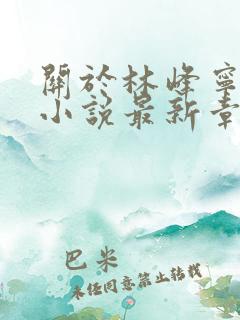 關於林峰寧
小說最新章
巴米
未经同意禁止转载